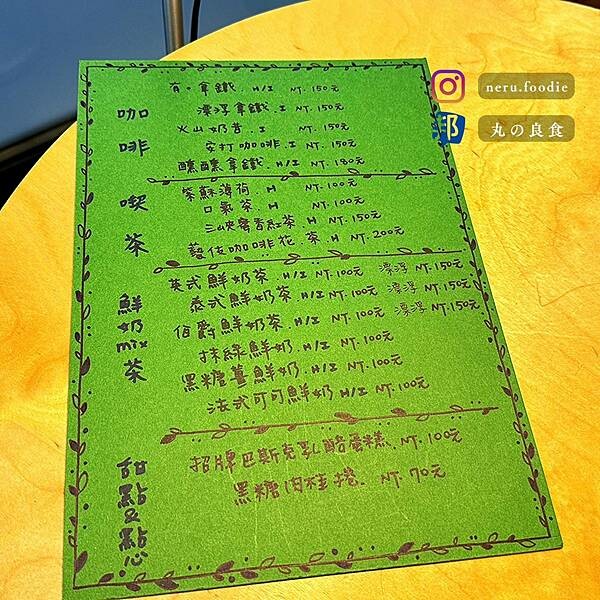 neru.foodie
邦
丸の良食
咖啡
有。拿鐵.H/I NT.150元
漂浮拿鐵.I NT.150元
火山奶昔.I NT.150元
安打咖啡.I NT.150元
醺醺拿鐵.H/I NT.180元
喫茶
紫蘇薄荷.H NT.100元
口氣茶.H NT.100元
三峽蜜香紅茶.H NT.150元
藝伎咖啡花.茶.H NT.200元
鮮奶mix茶
英式鮮奶茶.H/I NT.100元 漂浮 NT.150元
泰式鮮奶茶.H/I NT.100元 漂浮 NT.150元
伯爵鮮奶茶.H/I NT.100元 漂浮 NT.150元
抹綠鮮奶.H/I NT.100元
黑糖薑鮮奶.H/I NT.100元
法式可可鮮奶 H/I NT.100元
甜點&點心
招牌巴斯克乳酪蛋糕. NT.100元
黑糖肉桂捲. NT.70元